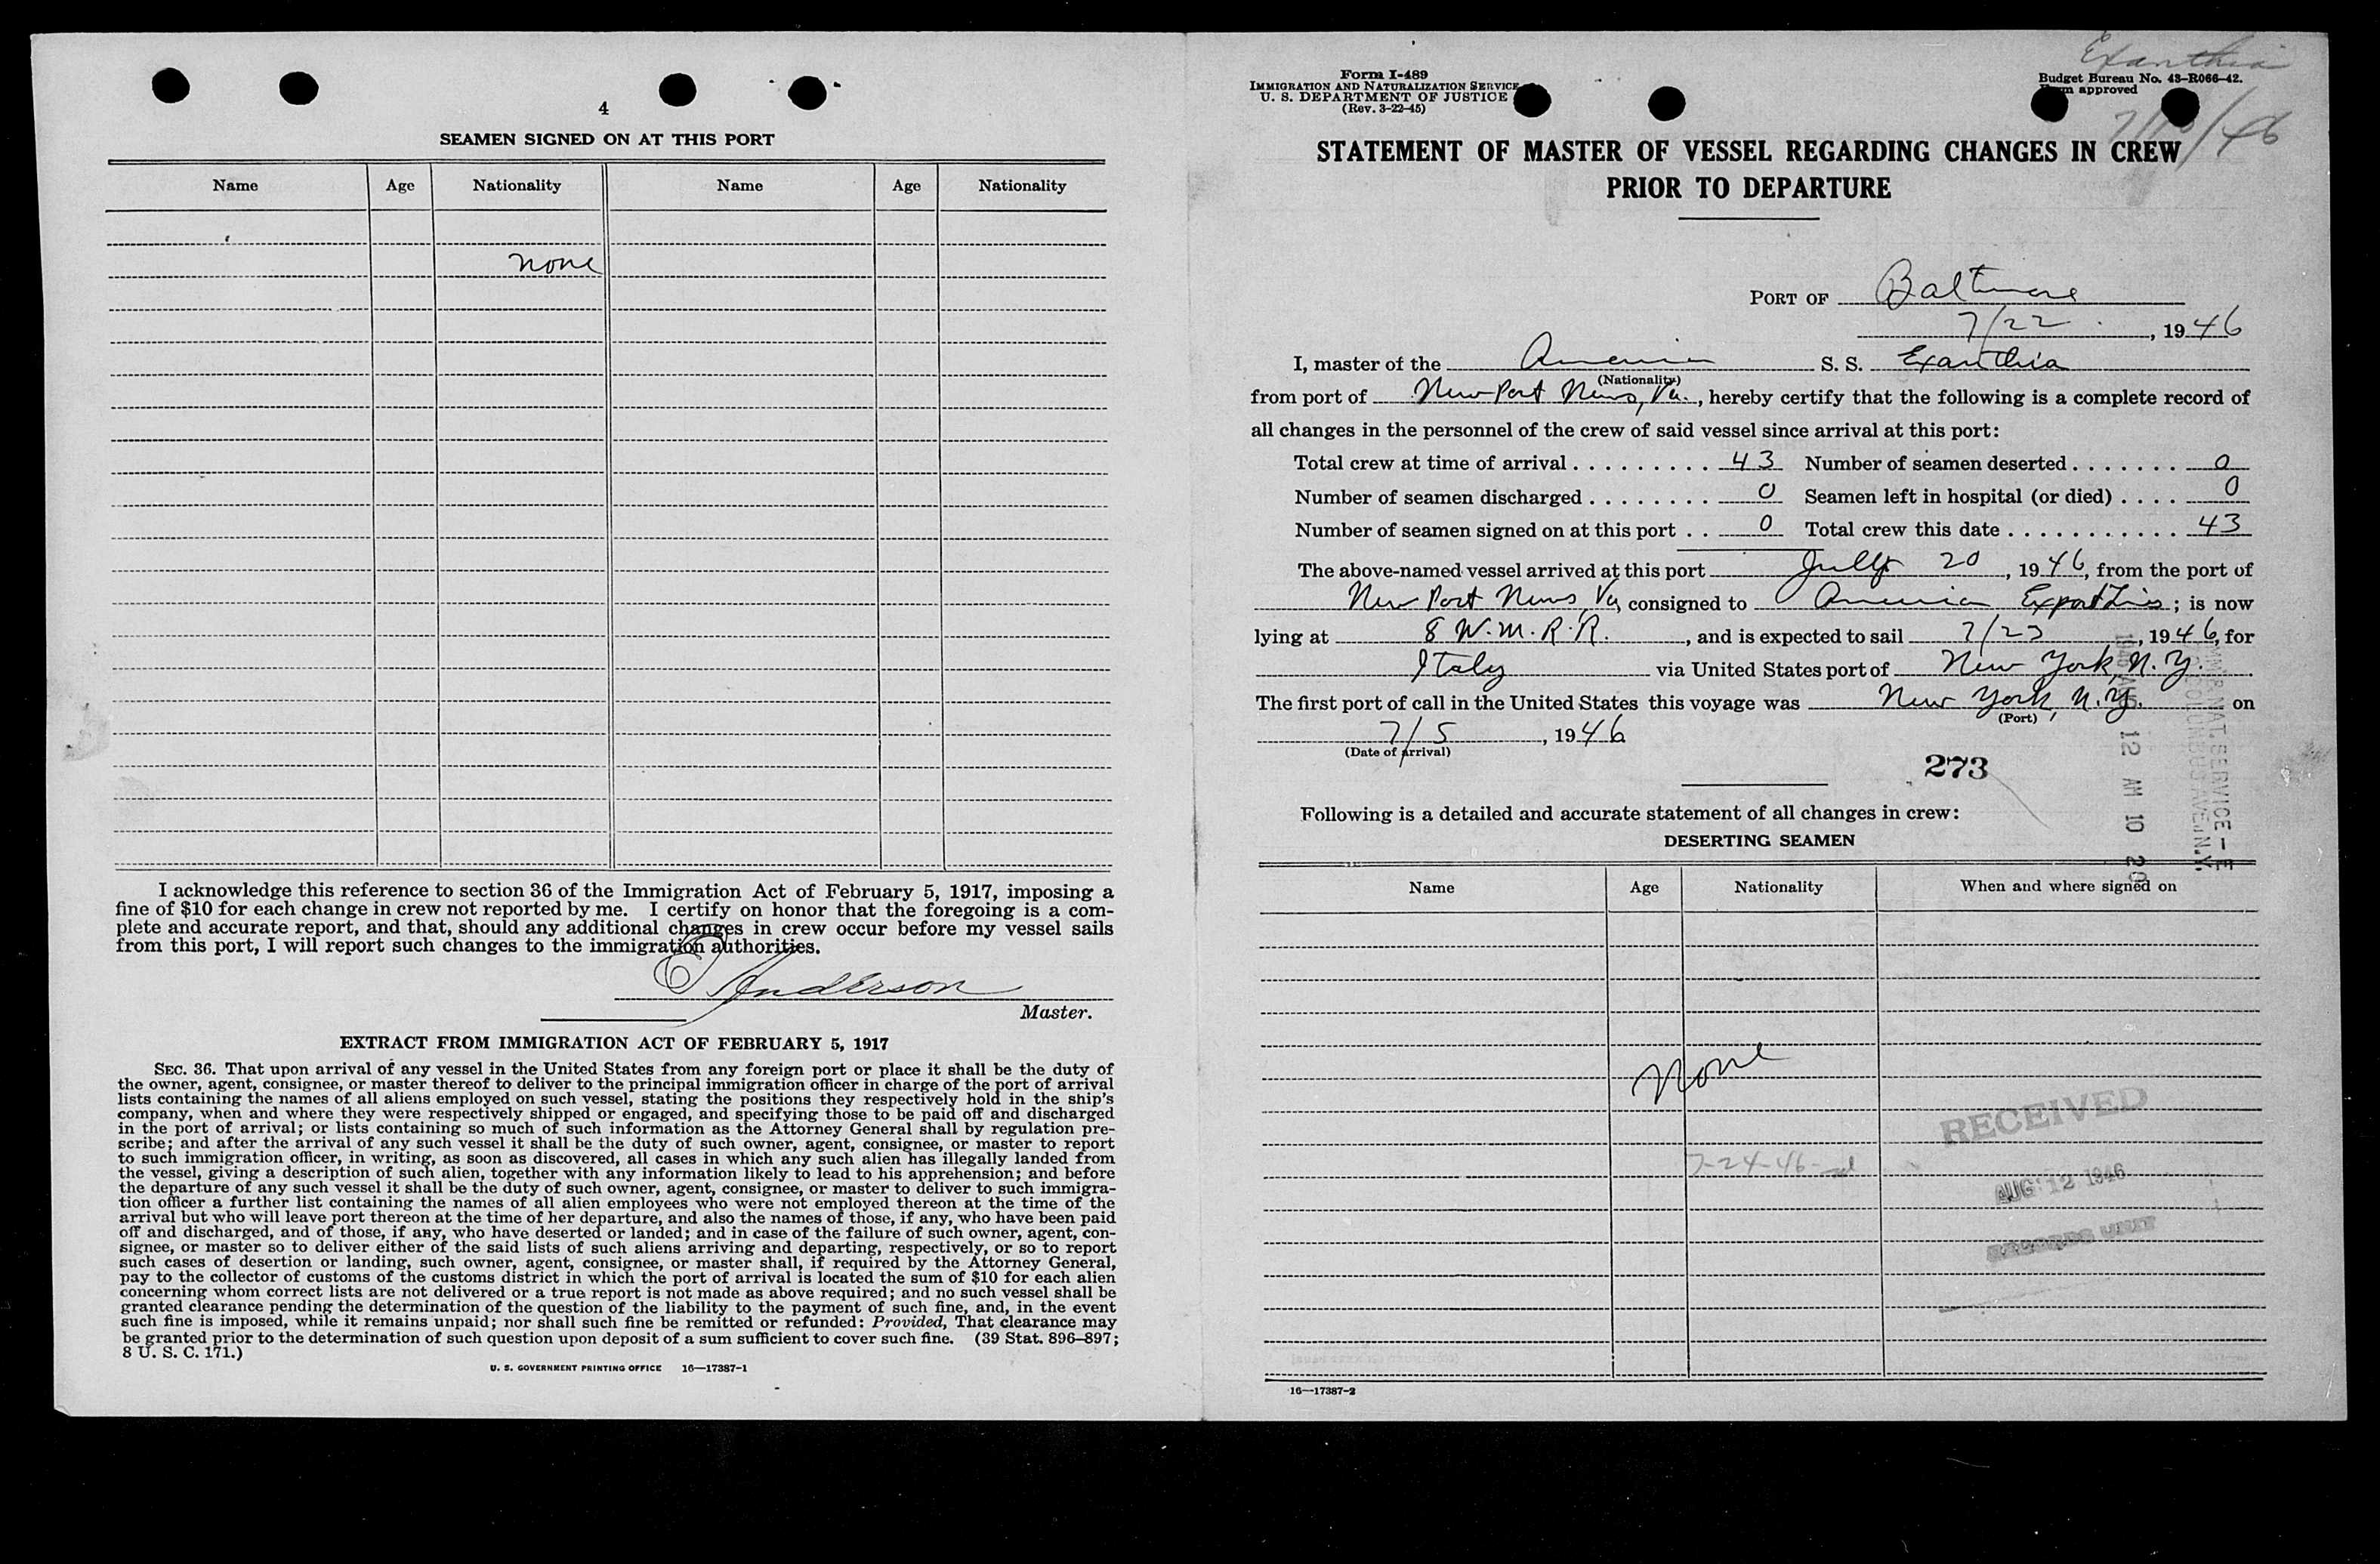 4
SEAMEN SIGNED ON AT THIS PORT
Name Age Nationality Name Age Nationality
none
I acknowledge this reference to section 36 of the Immigration Act of February 5, 1917, imposing a
fine of $10 for each change in crew not reported by me. I certify on honor that the foregoing is a com-
plete and accurate report, and that, should any additional changes in crew occur before my vessel sails
from this port, I will report such changes to the immigration authorities.
Anderson
Master.
EXTRACT FROM IMMIGRATION ACT OF FEBRUARY 5, 1917
SEC. 36. That upon arrival of any vessel in the United States from any foreign port or place it shall be the duty of
the owner, agent, consignee, or master thereof to deliver to the principal immigration officer in charge of the port of arrival
lists containing the names of all aliens employed on such vessel, stating the positions they respectively hold in the ship's
company, when and where they were respectively shipped or engaged, and specifying those to be paid off and discharged
in the port of arrival; or lists containing so much of such information as the Attorney General shall by regulation pre-
scribe; and after the arrival of any such vessel it shall be the duty of such owner, agent, consignee, or master to report
to such immigration officer, in writing, as soon as discovered, all cases in which any such alien has illegally landed from
the vessel, giving a description of such alien, together with any information likely to lead to his apprehension; and before
the departure of any such vessel it shall be the duty of such owner, agent, consignee, or master to deliver to such immigra-
tion officer a further list containing the names of all alien employees who were not employed thereon at the time of the
arrival but who will leave port thereon at the time of her departure, and also the names of those, if any, who have been paid
off and discharged, and of those, if any, who have deserted or landed; and in case of the failure of such owner, agent, con-
signee, or master so to deliver either of the said lists of such aliens arriving and departing, respectively, or so to report
such cases of desertion or landing, such owner, agent, consignee, or master shall, if required by the Attorney General,
pay to the collector of customs of the customs district in which the port of arrival is located the sum of $10 for each alien
concerning whom correct lists are not delivered or a true report is not made as above required; and no such vessel shall be
granted clearance pending the determination of the question of the liability to the payment of such fine, and, in the event
such fine is imposed, while it remains unpaid; nor shall such fine be remitted or refunded: Provided, That clearance may
be granted prior to the determination of such question upon deposit of a sum sufficient to cover such fine. (39 Stat. 896–897;
8 U. S. C. 171.)
U. S. GOVERNMENT PRINTING OFFICE 16—17387-1
Exanthia
Form I-489
IMMIGRATION AND NATURALIZATION SERVICE
U. S. DEPARTMENT OF JUSTICE
(Rev. 3-22-45)
Budget Bureau No. 43-R066-42.
approved
STATEMENT OF MASTER OF VESSEL REGARDING CHANGES IN CREW
PRIOR TO DEPARTURE
PORT OF Baltimore
7/22, 1946
I, master of the American S. S. Exanthia
(Nationality)
from port of New Port News, Va., hereby certify that the following is a complete record of
all changes in the personnel of the crew of said vessel since arrival at this port:
Total crew at time of arrival 43 Number of seamen deserted 0
Number of seamen discharged 0 Seamen left in hospital (or died) 0
Number of seamen signed on at this port 0 Total crew this date 43
The above-named vessel arrived at this port July 20, 1946, from the port of
New Port News Va, consigned to American Export Lines; is now
lying at 8 W.M.R.R., and is expected to sail 7/23, 1946, for
Italy via United States port of New York, N.Y.
The first port of call in the United States this voyage was New York, N.Y. on
(Port)
7/5, 1946
(Date of arrival)
273
Following is a detailed and accurate statement of all changes in crew:
DESERTING SEAMEN
Name Age Nationality When and where signed on
None
7-24-46
RECEIVED
AUG 12 1946
RECORDS UNIT
16—17387-2
1946 AUG 12 AM 10 20